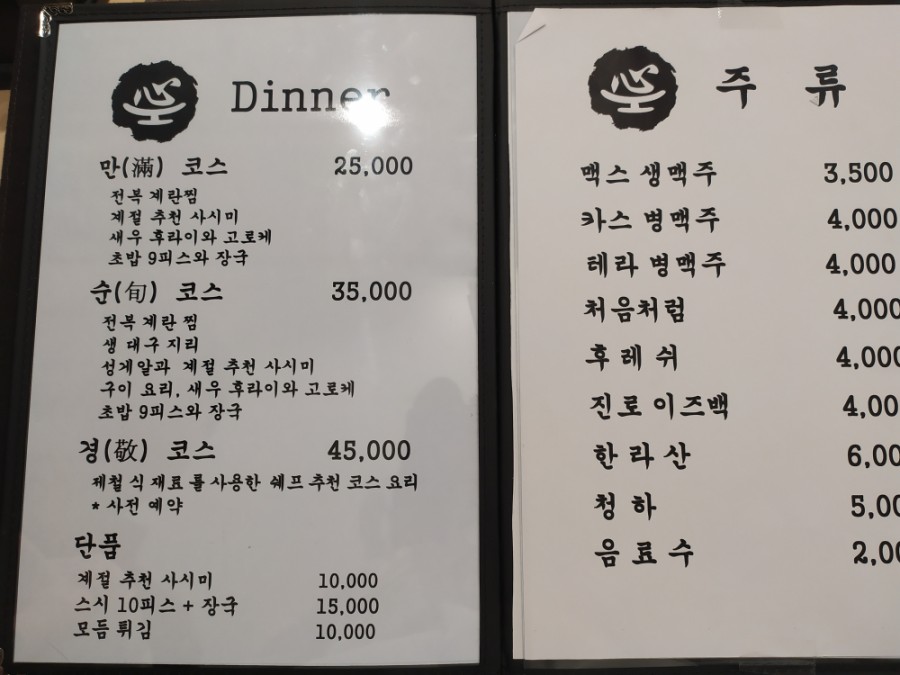 Dinner
만(滿) 코스 25,000
전복 계란찜
계절 추천 사시미
새우 후라이와 고로케
초밥 9피스와 장국
순(旬) 코스 35,000
전복 계란 찜
생 대구 지리
성게알과 계절 추천 사시미
구이 요리, 새우 후라이와 고로케
초밥 9피스와 장국
경(敬) 코스 45,000
제철 식 재료 를 사용한 쉐프 추천 코스 요리
* 사전 예약
단품
계절 추천 사시미 10,000
스시 10피스 + 장국 15,000
모듬 튀김 10,000
주 류
맥스 생맥주 3,500
카스 병맥주 4,000
테라 병맥주 4,000
처음처럼 4,000
후 레 쉬 4,000
진로 이즈백 4,00
한 라 산 6,00
청 하 5,00
음 료 수 2,00